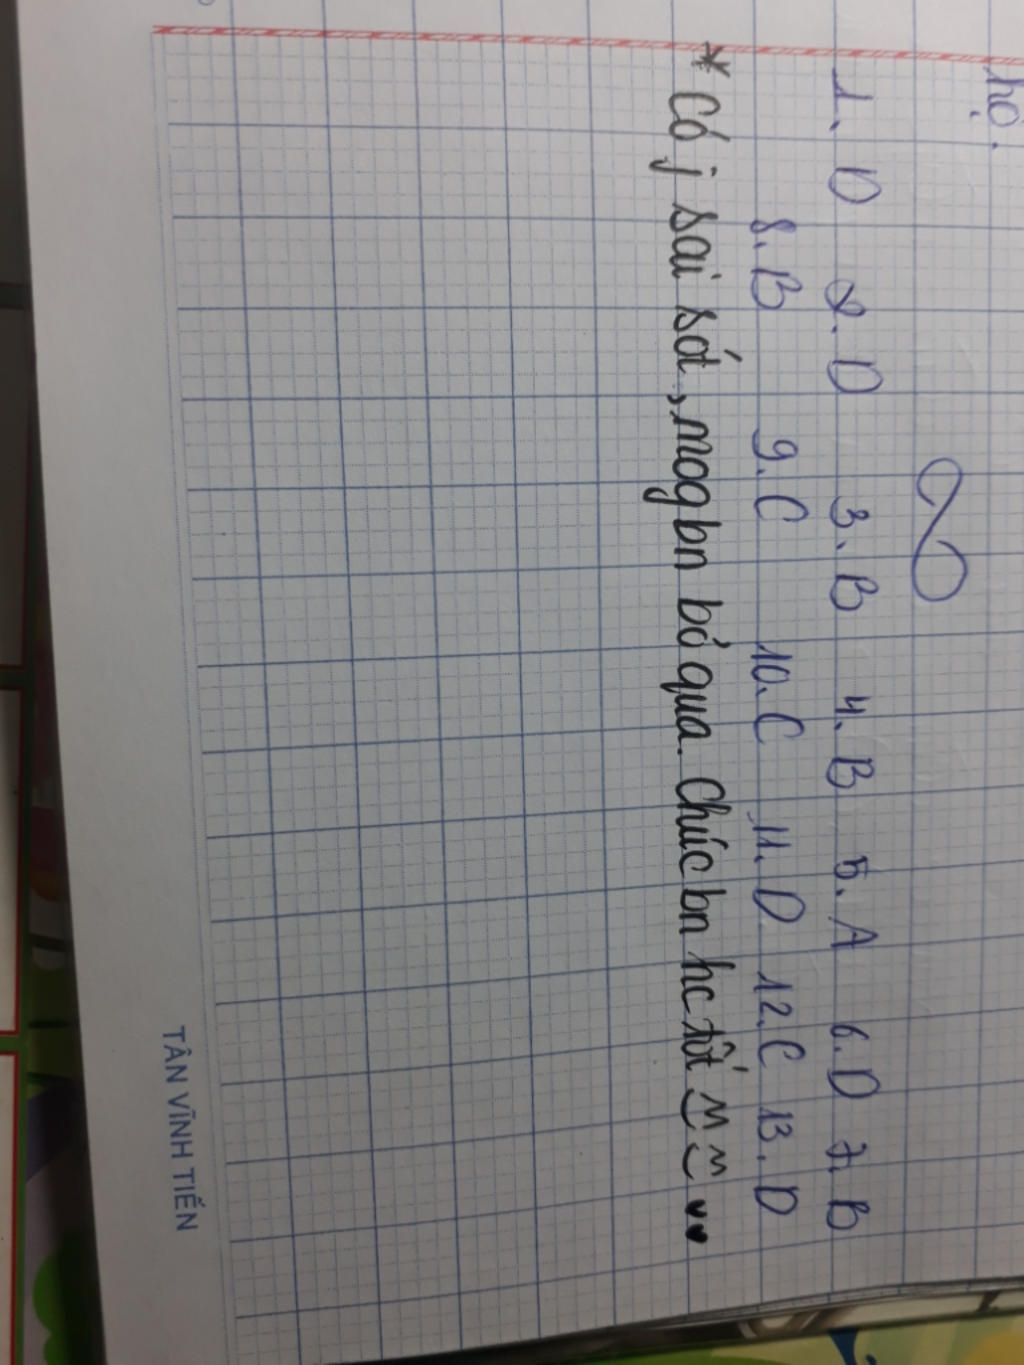 hộ.
1. D 2. D 3. B 4. B 5. A 6. D 7. B
8. B 9. C 10. C 11. D 12. C 13. D
* Có j sai sót, mog bn bỏ qua. Chúc bn hc tốt
TÂN VĨNH TIẾN